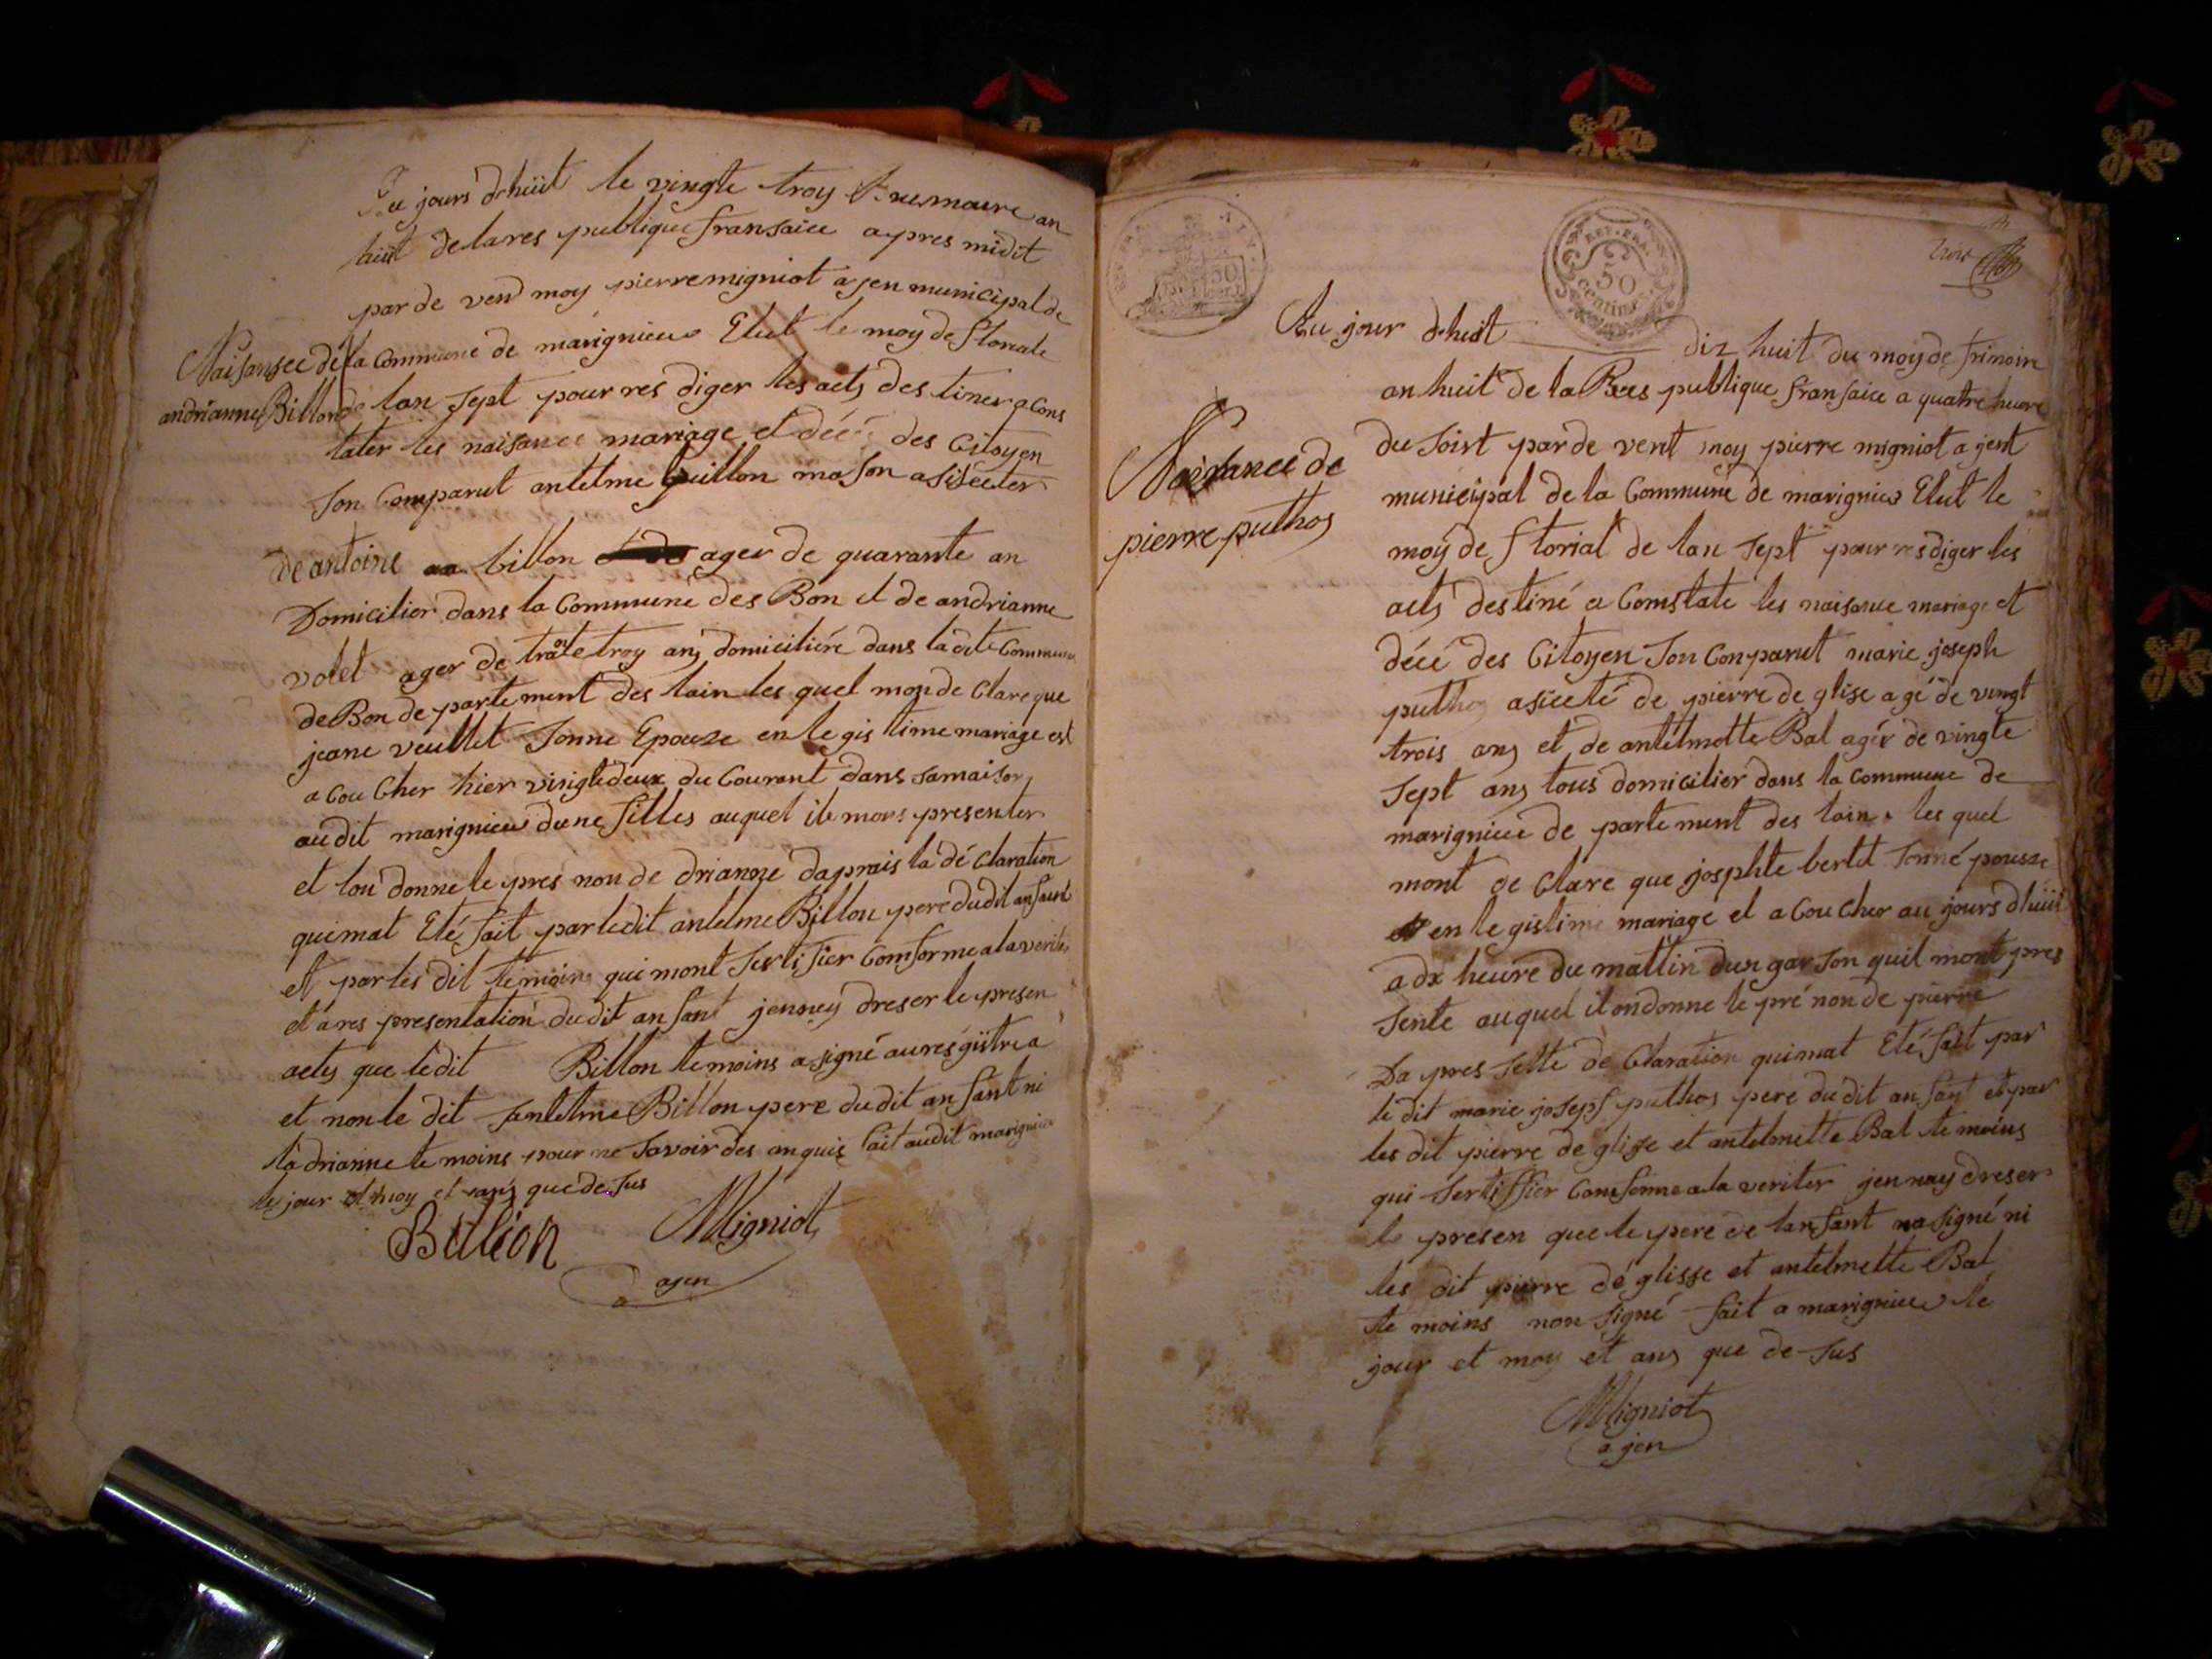 Au jours dhüit le vingte troy Brumaire an
huit de la res publique fransaice apres midit
par de vend moy pierre migniot ajen municipal de
la Commune de marignieu Elut le moy de floreale
de lan sept pour res diger les acts des tiner a Cons
tater les naisance mariage et décé des Citoyen
Son Comparut antelme Billon mason asisecter
de antoine billon ager de quarante an
Domicilier dans la Commune des Bon et de andrianne
volet ager de trante troy ans domiciliére dans la dite Commune
de Bon de partement des lain les quel mon de Clare que
jeane veullet Sonne Epouze en le gis time mariage est
a Cou Cher hier vingtedeux du Courant dans sa maison
au dit marignieu dune filles auquel ile mons presenter
et lon donne le pres non de drianne daprais la dé Claration
quimat Eté fait par le dit antelme Billon pere du dit anfant
et par les dit temoins qui mont Sertifier Comforme a la verite
et a res presentation du dit anfant jenney dreser le presen
actes que le dit Billon temoins a signé au resgistre a
et non le dit antelme Billon pere du dit anfant ni
la drianne temoins pour ne Savoir des anquis fait au dit marignieu
le jour et moy et ans que de sus
Billion Migniot
ajen
Naisansee de
andrianne Billon
trois
REP. FRA.
50
centimes
50
Au jour dhuit dix huit du moy de frimoire
an huit de la Rees publique fransaice a quatre heure
du Soirt par de vent moy pierre migniot a jent
municipal de la Commune de marignieu Elut le
moy de florial de lan Sept pour res diger les
acts destiné a Comstate les naisance mariage et
décé des Citoyen Son Comparut marie joseph
puthos asiceté de pierre de glise agé de vingt
trois ans et de antelmette Bal agér de vingte
Sept ans tous domicilier dans la Commune de
marignieu de partement des lain les quel
mont de Clare que josphte bertet Sonné pousze
en le gistime mariage et a Cou Cher au jours dhuit
a dx heure du mattin dun garson quil mont pres
sente auquel il on donne le pré non de pierre
Da pres Sette de Claration quimat Eté fait par
le dit marie joseps puthos pere du dit anfant et par
les dit pierre de glisse et antelmette Bal te moins
qui Sertiffier Comforme a la veriter jen nay dreser
le presen que le pere de lanfant na signé ni
les dit pierre dé glisse et antelmette Bal
te moins non signé fait a marignieu le
jour et moy et ans que de sus
Migniot
a jen
Naissance de
pierre puthos